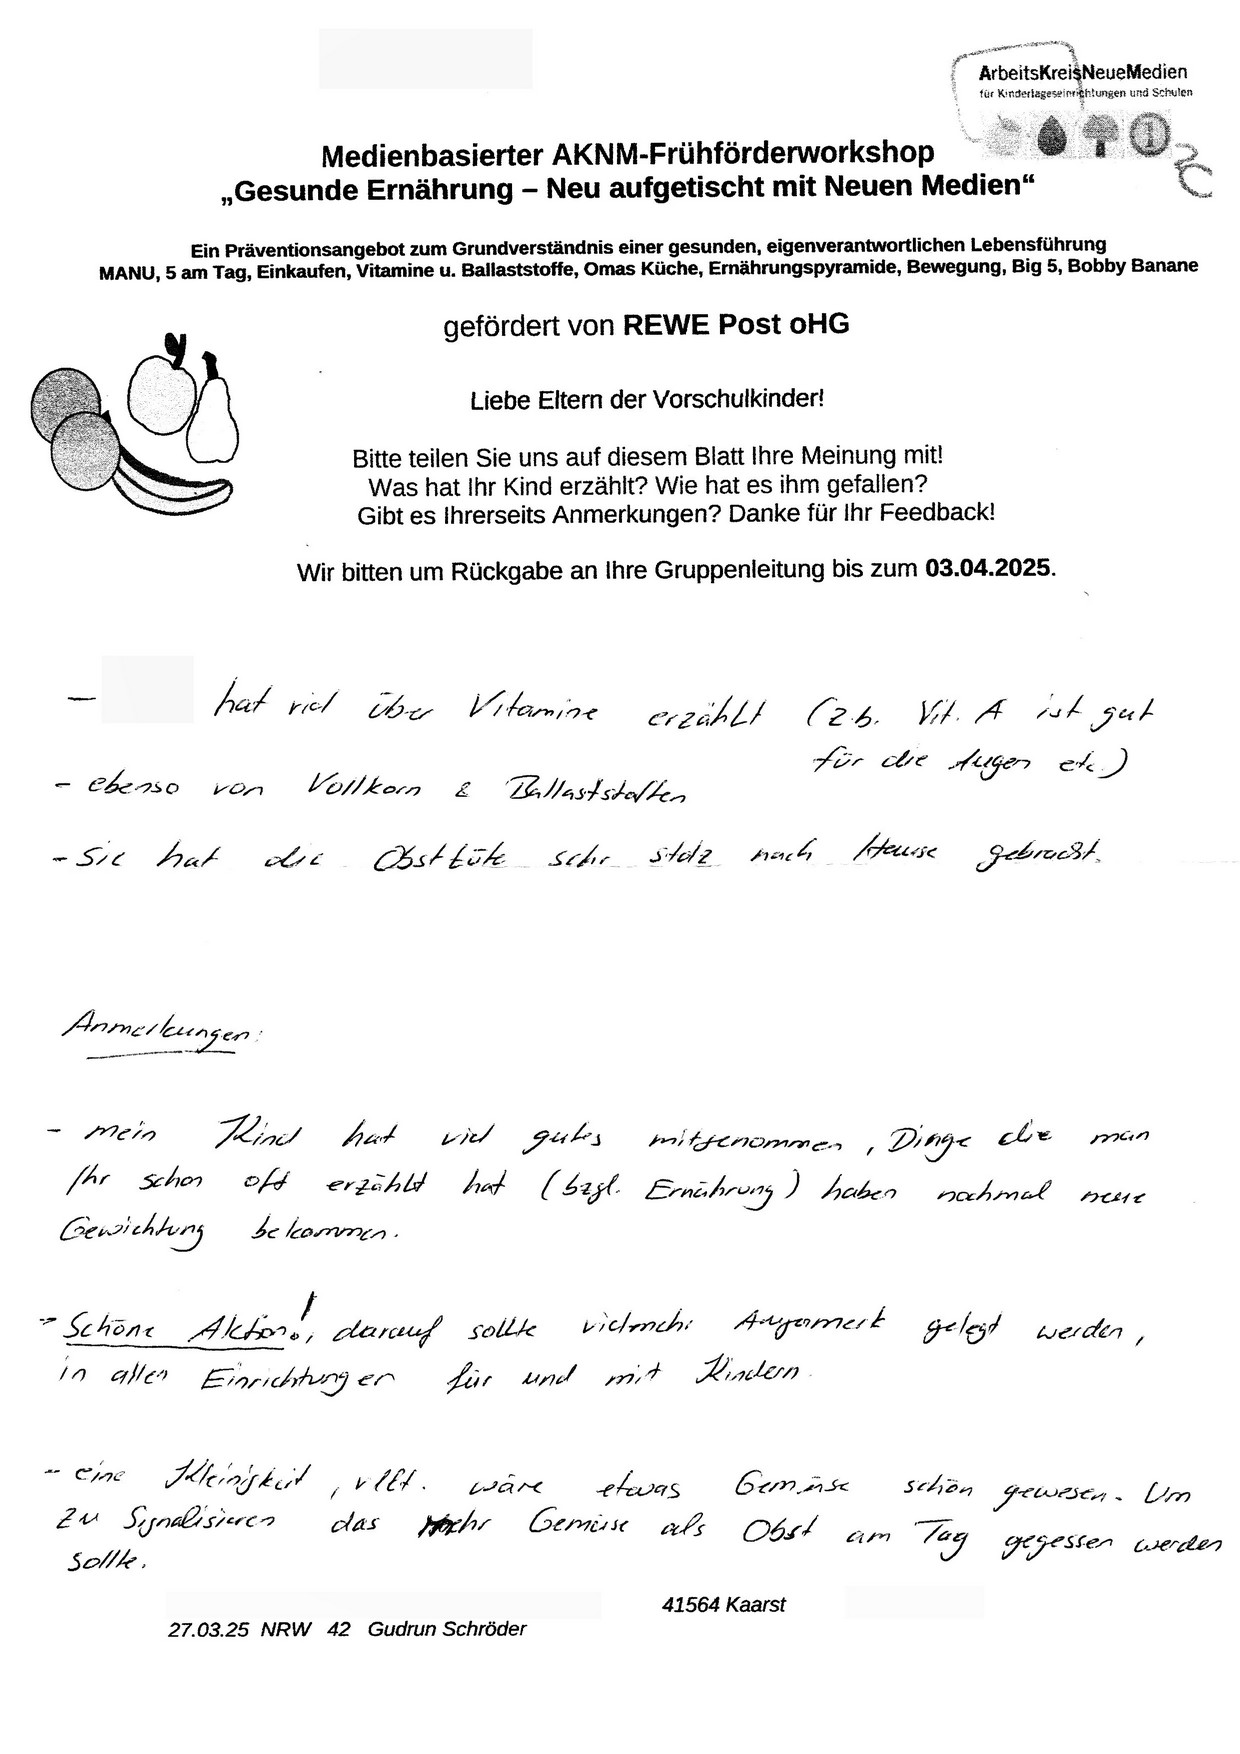 ArbeitsKreisNeueMedien
für Kindertageseinrichtungen und Schulen
Medienbasierter AKNM-Frühförderworkshop
„Gesunde Ernährung – Neu aufgetischt mit Neuen Medien“
Ein Präventionsangebot zum Grundverständnis einer gesunden, eigenverantwortlichen Lebensführung
MANU, 5 am Tag, Einkaufen, Vitamine u. Ballaststoffe, Omas Küche, Ernährungspyramide, Bewegung, Big 5, Bobby Banane
gefördert von REWE Post oHG
Liebe Eltern der Vorschulkinder!
Bitte teilen Sie uns auf diesem Blatt Ihre Meinung mit!
Was hat Ihr Kind erzählt? Wie hat es ihm gefallen?
Gibt es Ihrerseits Anmerkungen? Danke für Ihr Feedback!
Wir bitten um Rückgabe an Ihre Gruppenleitung bis zum 03.04.2025.
– hat viel über Vitamine erzählt (z.b. Vit. A ist gut
für die Augen etc.)
- ebenso von Vollkorn & Ballaststoffen
- Sie hat die Obsttüte sehr stolz nach Hause gebracht.
Anmerkungen:
- mein Kind hat viel gutes mitgenommen, Dinge die man
Ihr schon oft erzählt hat (bzgl. Ernährung) haben nochmal neue
Gewichtung bekommen.
- Schöne Aktion!, darauf sollte vielmehr Augenmerk gelegt werden,
in allen Einrichtungen für und mit Kindern.
- eine Kleinigkeit, vllt. wäre etwas Gemüse schön gewesen. Um
zu Signalisieren das Mehr Gemüse als Obst am Tag gegessen werden
sollte.
41564 Kaarst
27.03.25 NRW 42 Gudrun Schröder